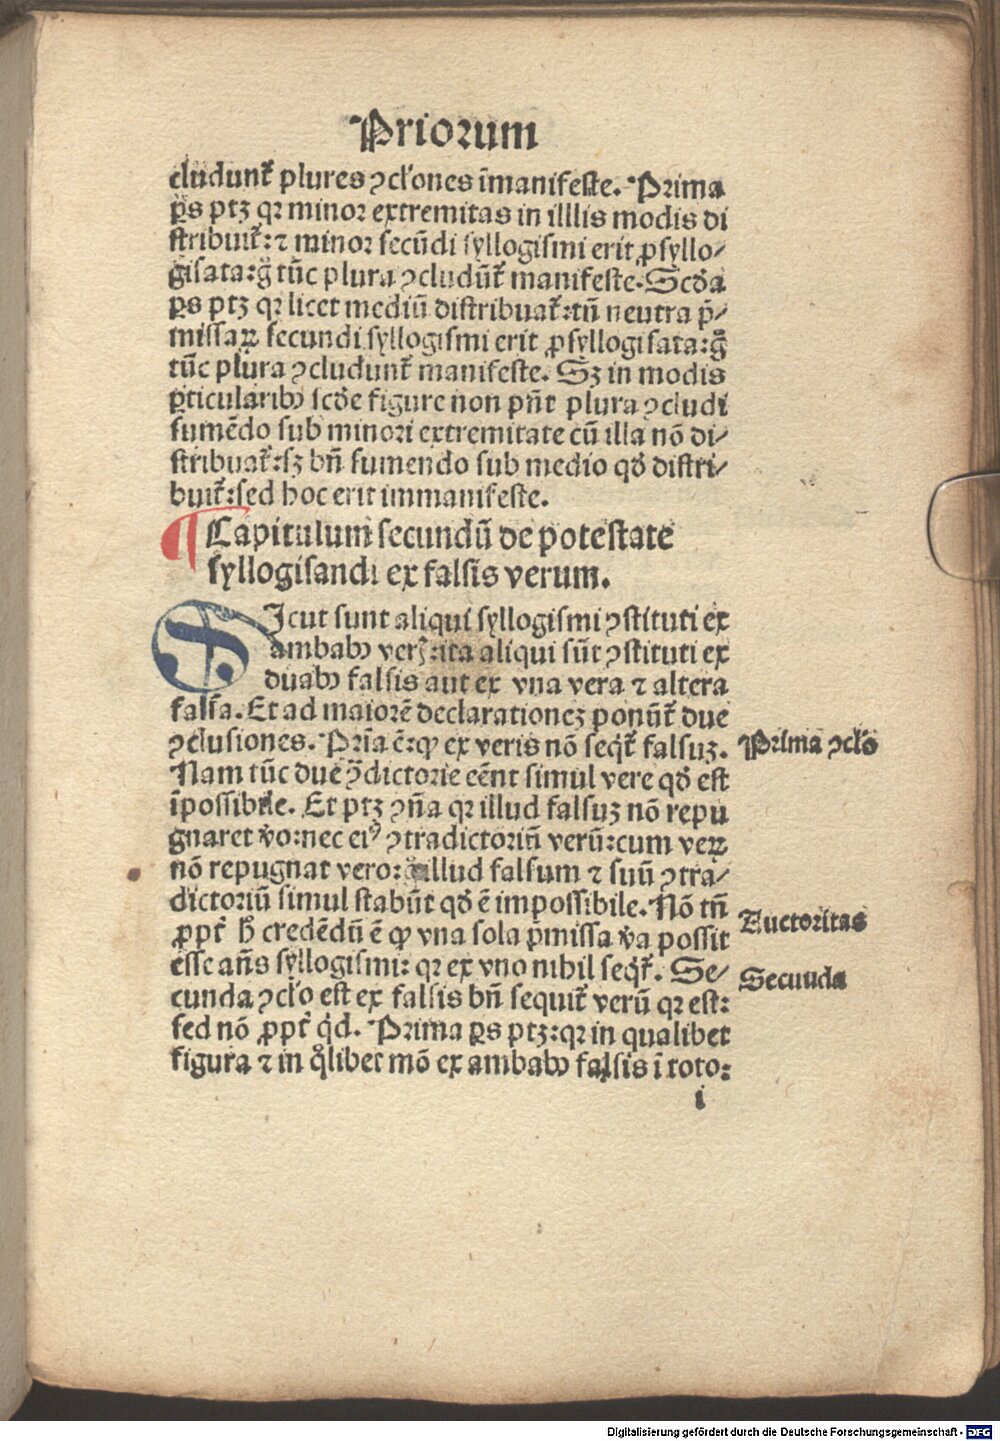 Priorum
cludunt᷑ plures ꝯcl̓ones īmanifeste. Prima
ꝑs ptꝫ qꝛ minor extremitas in illlis modis di
stribuit᷑: ⁊ minor secūdi syllogismi erit ꝓsyllo⸗
gisata: g̊ tūc plura ꝯcludūt᷑ manifeste. Scďa
ꝑs ptꝫ qꝛ licet mediū distribuat᷑: tn̄ neutra p̄⸗
missaꝝ secundi syllogismi erit ꝓsyllogisata: g̊
tūc plura ꝯcludunt᷑ manifeste. Sꝫ in modis
ꝑticularibꝰ scďe figure non pn̄t plura ꝯcludi
sumēdo sub minori extremitate cū illa nō di⸗
stribuat᷑: sꝫ bn̄ sumendo sub medio qď distri⸗
buit᷑: sed hoc erit immanifeste.
¶ Capitulum secundū de potestate
syllogisandi ex falsis verum.
SIcut sunt aliqui syllogismi ꝯstituti ex
ambabꝰ veris: ita aliqui sūt ꝯstituti ex
duabꝰ falsis aut ex vna vera ⁊ altera
falsa. Et ad maiorē declarationeꝫ ponūt᷑ due
ꝯclusiones. Prīa ē: ꝙ ex veris nō seqt᷑ falsuꝫ.
Nam tūc due ꝯ̄dictorie eēnt simul vere qď est
īpossibile. Et ptꝫ ꝯn̄a qꝛ illud falsuꝫ nō repu
gnaret v̓o: nec eiꝰ ꝯtradictoriū verū: cum veꝝ
nō repugnat vero: illud falsum ⁊ suū ꝯtra⸗
dictoriū simul stabūt qď ē impossibile. Nō tn̄
ꝓpt᷑ h̄ credēdū ē ꝙ vna sola p̄missa v̓a possit
esse an̄s syllogismi: qꝛ ex vno nihil seqt᷑. Se⸗
cunda ꝯcl̓o est ex falsis bn̄ sequit᷑ verū qꝛ est:
sed nō ꝓpt᷑ qd. Prima ꝑs ptꝫ: qꝛ in qualibet
figura ⁊ in qͦlibet mō ex ambabꝰ falsis ī toto:
i
Prima ꝯcl̓o
Auctoritas
Secunda
Digitalisierung gefördert durch die Deutsche Forschungsgemeinschaft - DFG